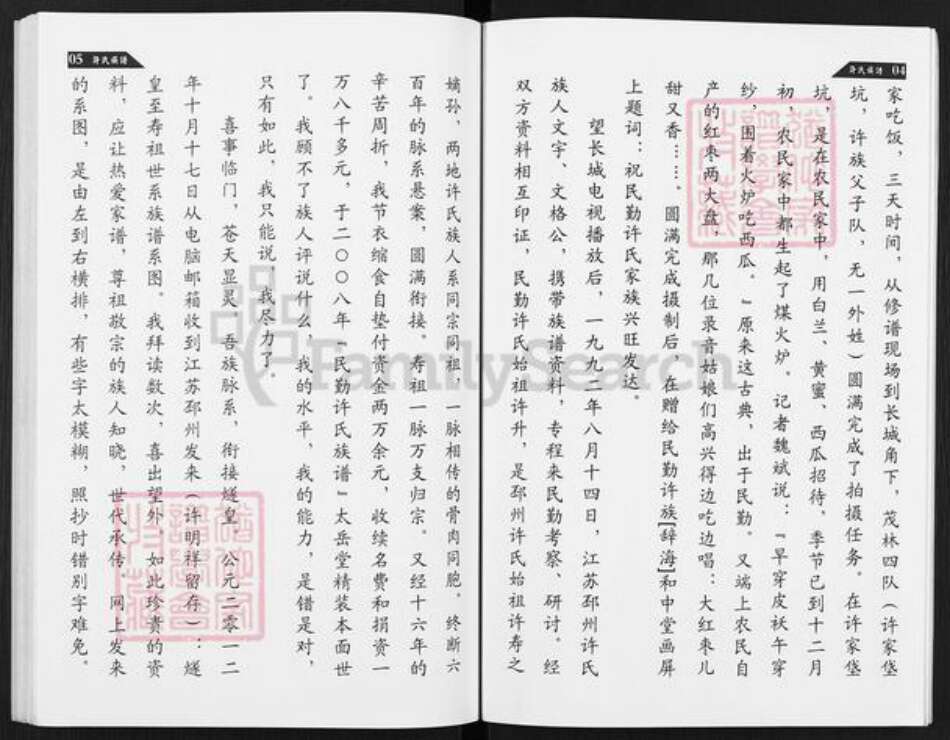 许氏族谱 04
家吃饭，三天时间，从修谱现场到长城角下，茂林四队（许家垡
坑，许族父子队，无一外姓）圆满完成了拍摄任务。在许家垡
坑，是在农民家中，用白兰、黄蜜、西瓜招待，季节已到十二月
初，农民家中都生起了煤火炉。记者魏斌说：“早穿皮袄午穿
纱，围着火炉吃西瓜。”原来这古典，出于民勤。又端上农民自
产的红枣两大盘，那几位录音姑娘们高兴得边吃边唱：大红枣儿
甜又香……。圆满完成摄制后，在赠给民勤许族[辞海]和中堂画屏
上题词：祝民勤许氏家族兴旺发达。
望长城电视播放后，一九九二年八月十四日，江苏邳州许氏
族人文宇、文格公，携带族谱资料，专程来民勤考察、研讨。经
双方资料相互印证，民勤许氏始祖许升，是邳州许氏始祖许寿之
05 许氏族谱
嫡孙，两地许氏族人系同宗同祖，一脉相传的骨肉同胞，终断六
百年的脉系悬案，圆满衔接。寿祖一脉万支归宗。又经十六年的
辛苦周折，我节衣缩食自垫付资金两万余元，收续名费和捐资一
万八千多元，于二〇〇八年“民勤许氏族谱”太岳堂精装本面世
了。我顾不了族人评说什么，我的水平，我的能力，是错是对，
只有如此，我只能说，我尽力了。
喜事临门，苍天显灵，吾族脉系，衔接燧皇，公元二零一二
年十月十七日从电脑邮箱收到江苏邳州发来（许明祥留存）：燧
皇至寿祖世系族谱系图。我拜读数次，喜出望外，如此珍贵的资
料，应让热爱家谱，尊祖敬宗的族人知晓，世代承传。网上发来
的系图，是由左到右横排，有些字太模糊，照抄时错别字难免。
FamilySearch